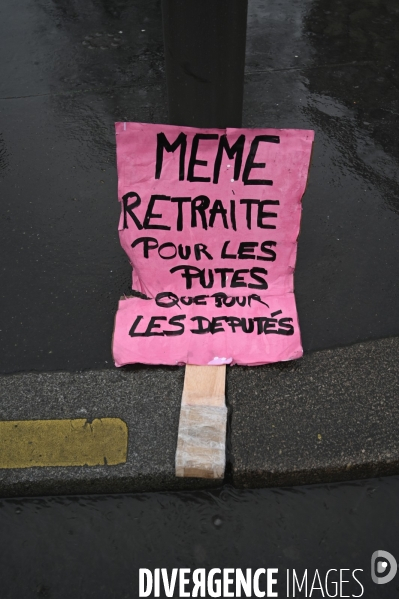 MEME
RETRAITE
POUR LES
PUTES
QUE POUR
LES DEPUTÉS
DIVERGENCE IMAGES